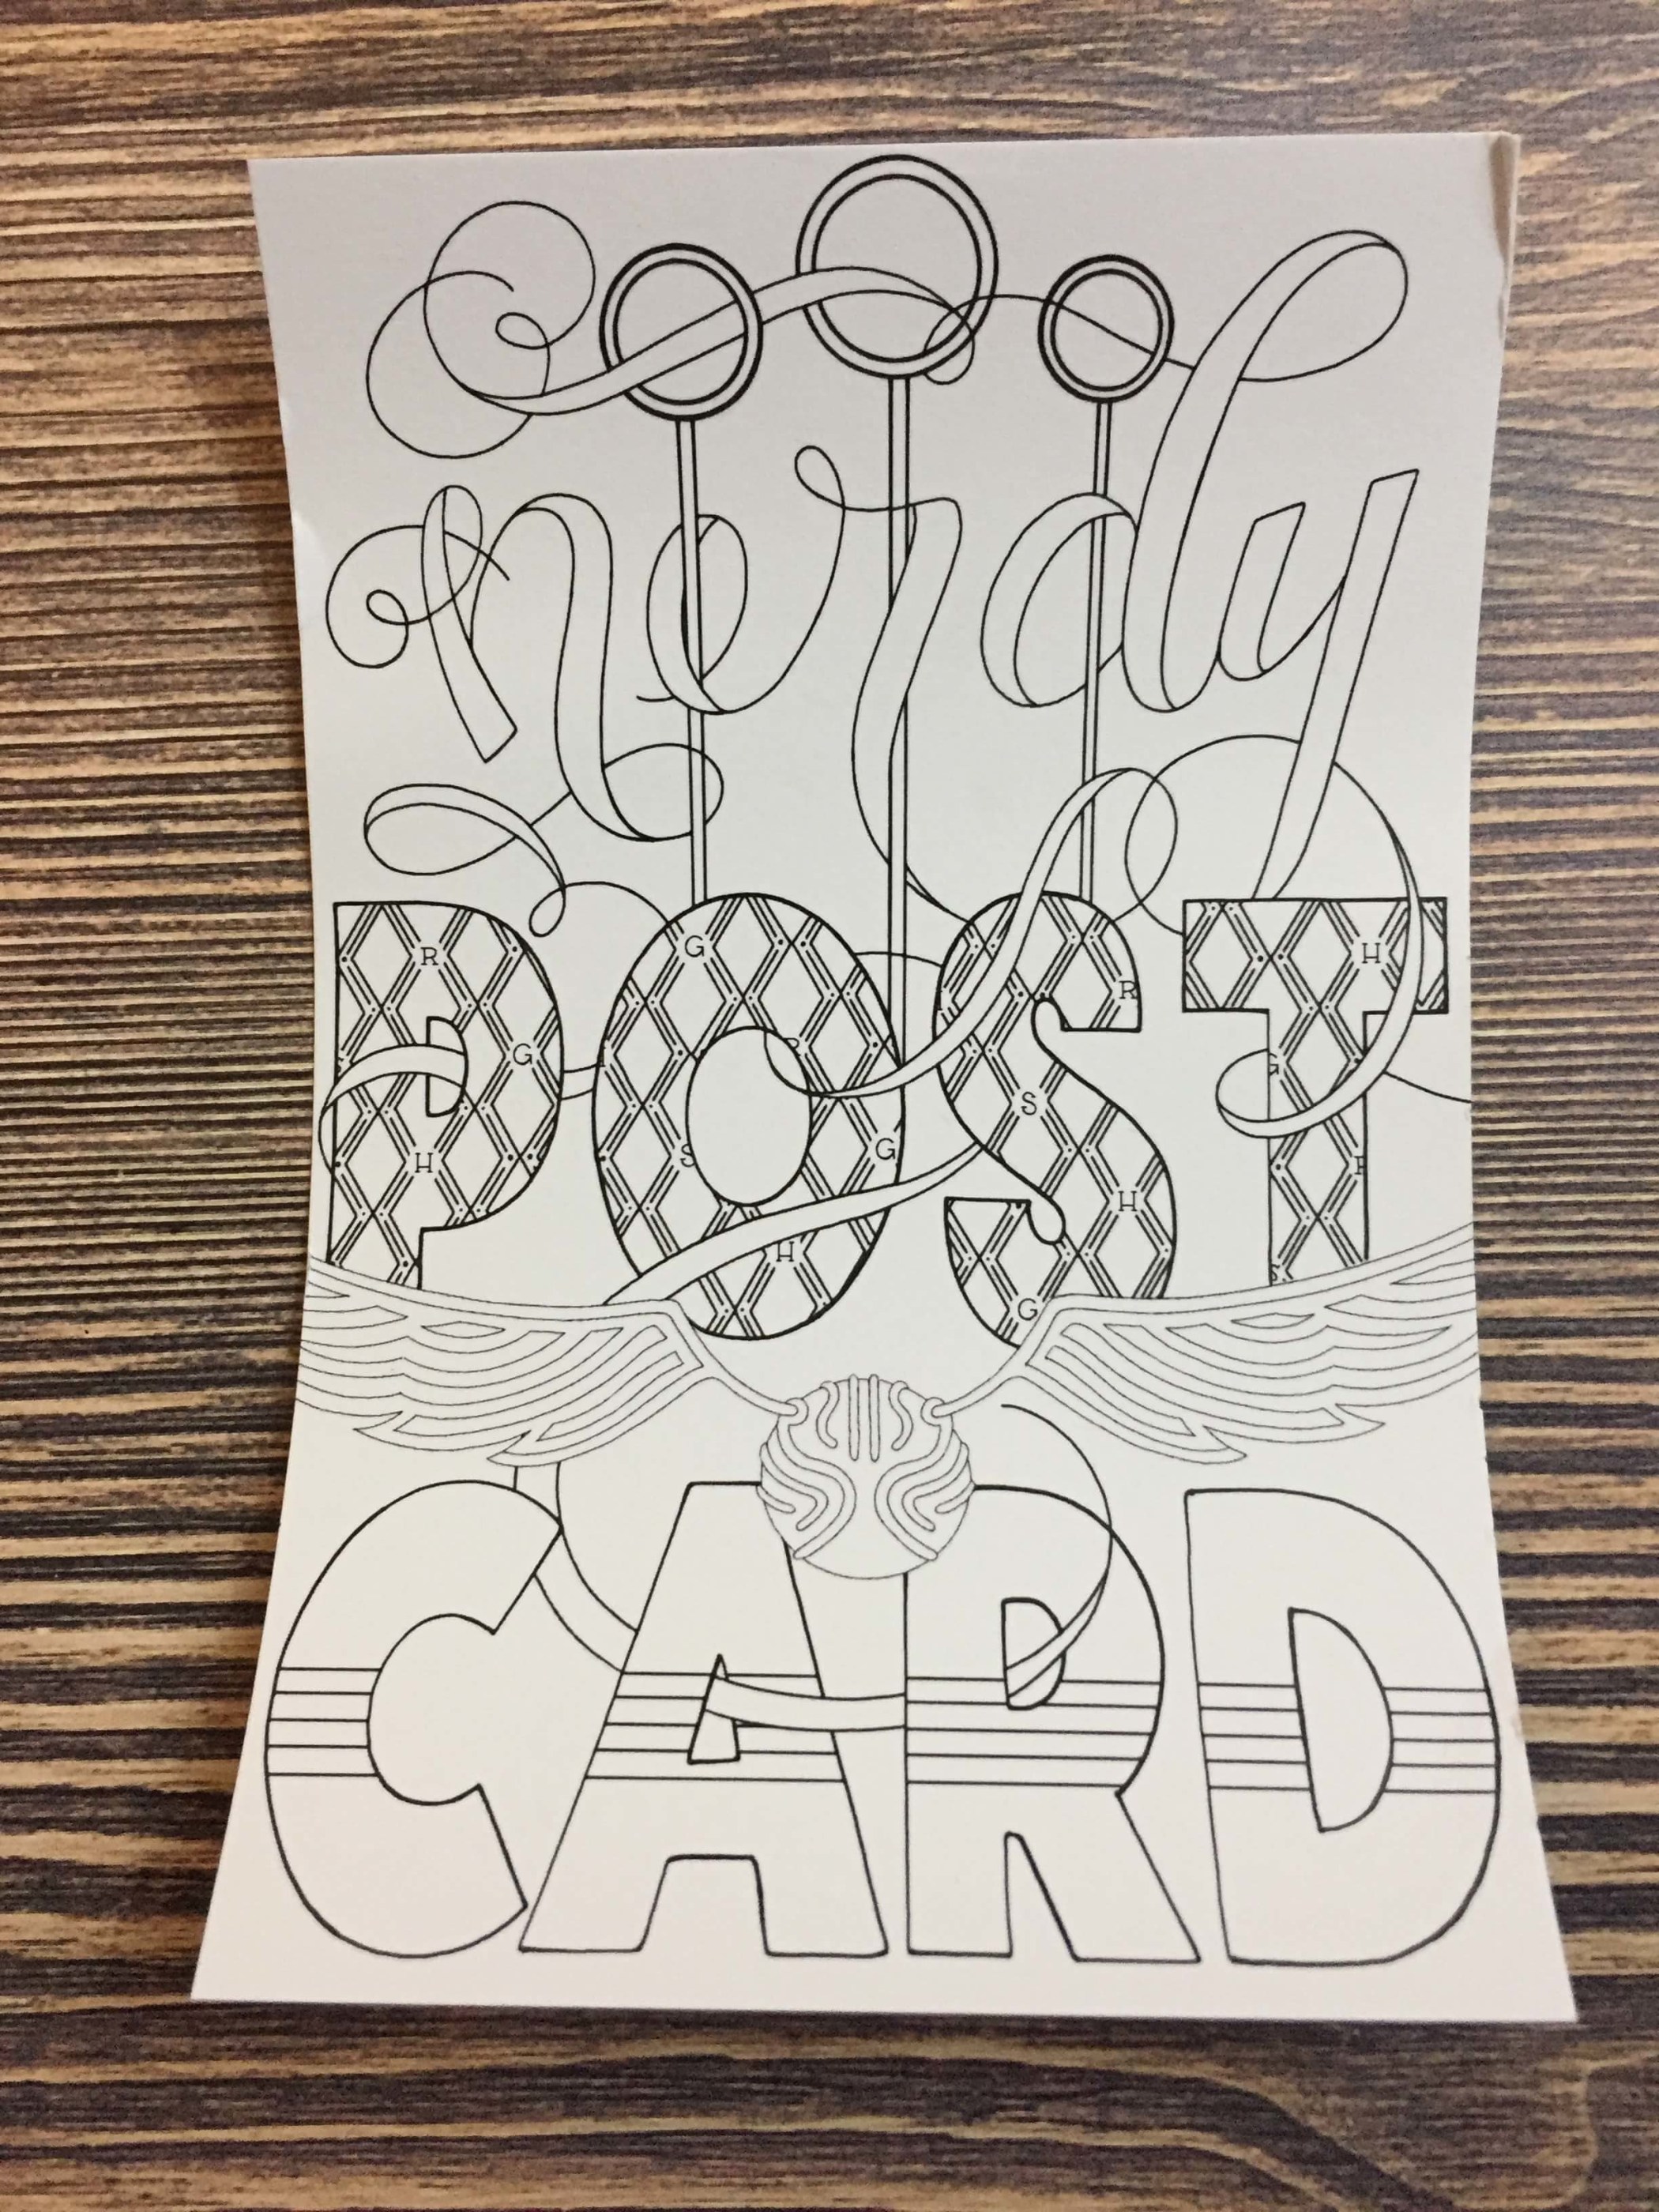 nerdy
POST
CARD